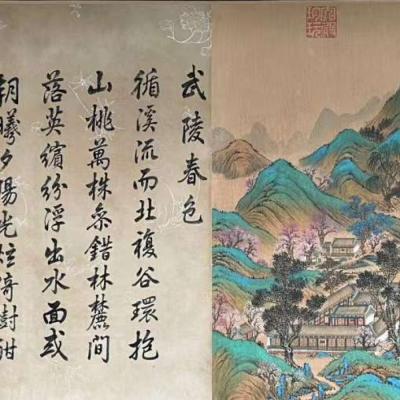 武陵春色
循溪流而北複谷環抱
山桃萬株叅錯林麓間
落英繽紛浮出水面或
朝曦夕陽光炫綺樹酣